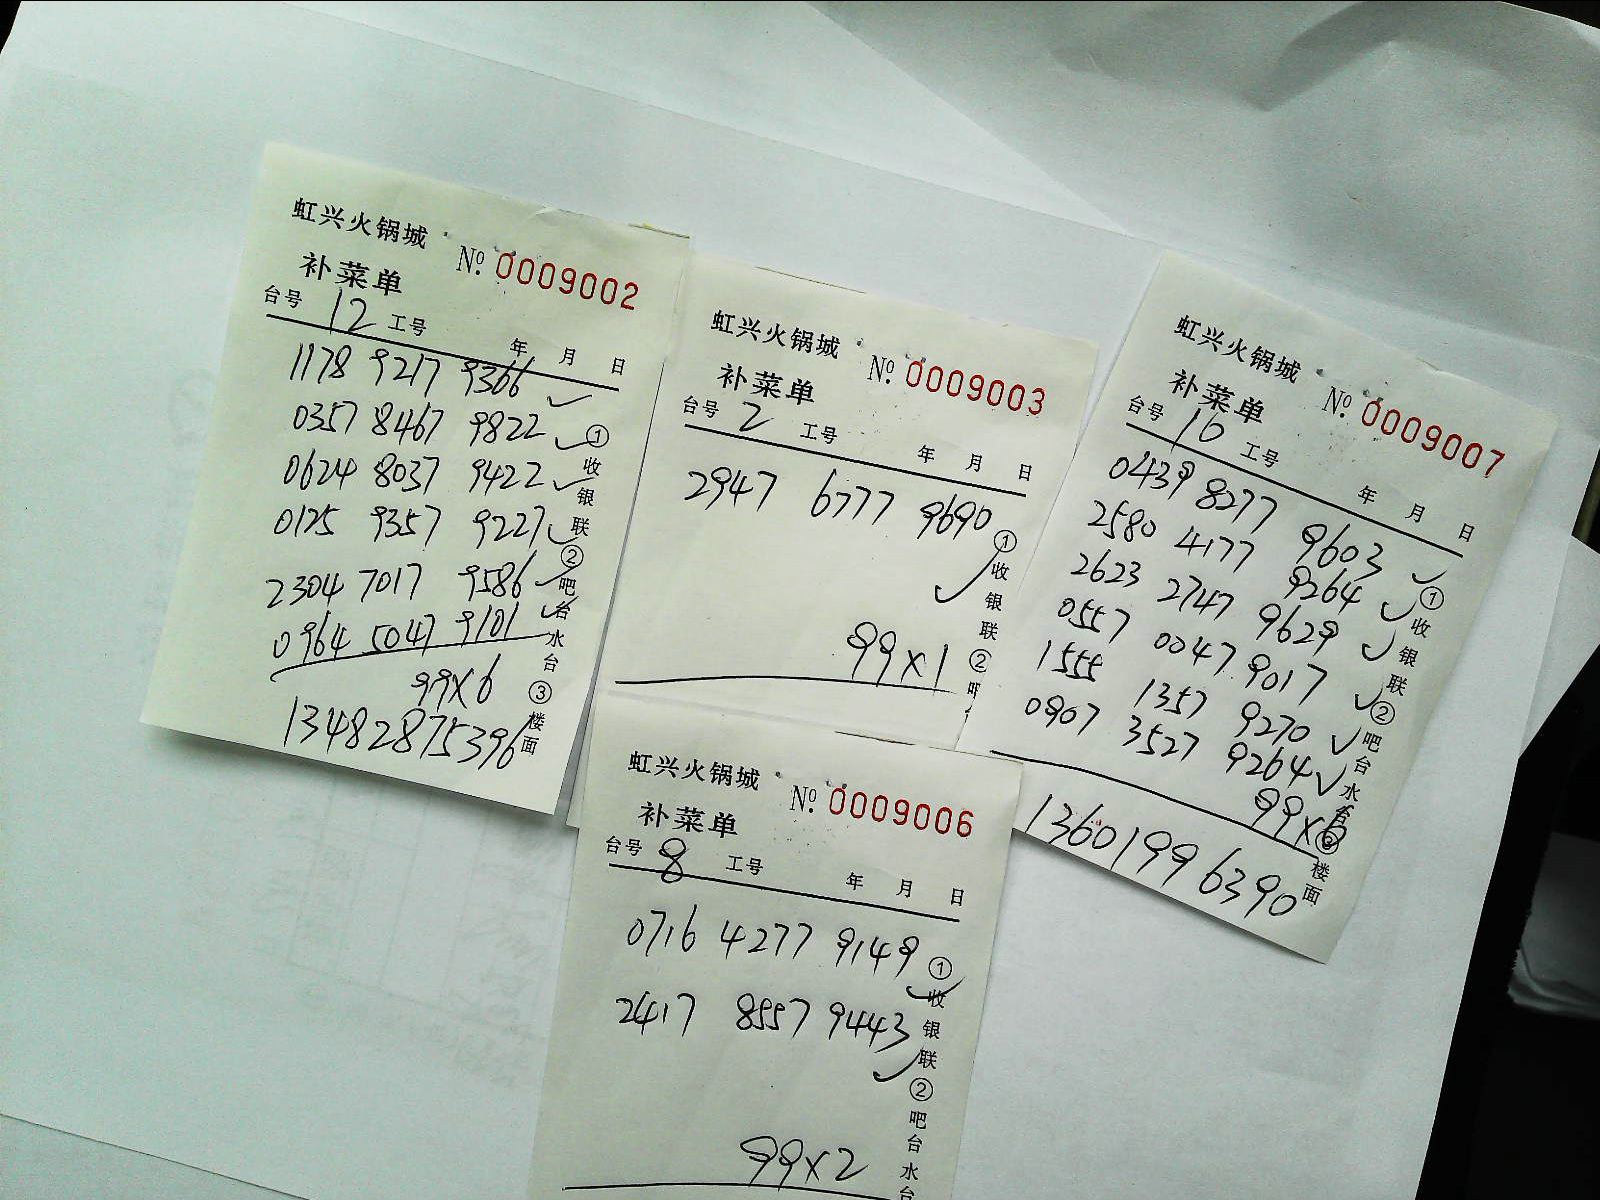 虹兴火锅城 № 0009002
补菜单
台号 12 工号 年 月 日
1178 9217 9366
0357 8467 9822
0624 8037 9422
0125 9357 9227
2304 7017 9586
0964 5047 9101
99×6
13482875396
①收银联②吧台水台③楼面
虹兴火锅城 № 0009003
补菜单
台号 2 工号 年 月 日
2947 6777 9690
99×1
①收银联②吧
虹兴火锅城 № 0009007
补菜单
台号 16 工号 年 月 日
0439 8277 9603
2580 4177 9264
2623 2747 9629
0557 0047 9017
1555 1357 9270
0907 3527 9264
99×6
13601996390
①收银联②吧台水台③楼面
虹兴火锅城 № 0009006
补菜单
台号 8 工号 年 月 日
0716 4277 9149
2417 8557 9443
99×2
①收银联②吧台水台